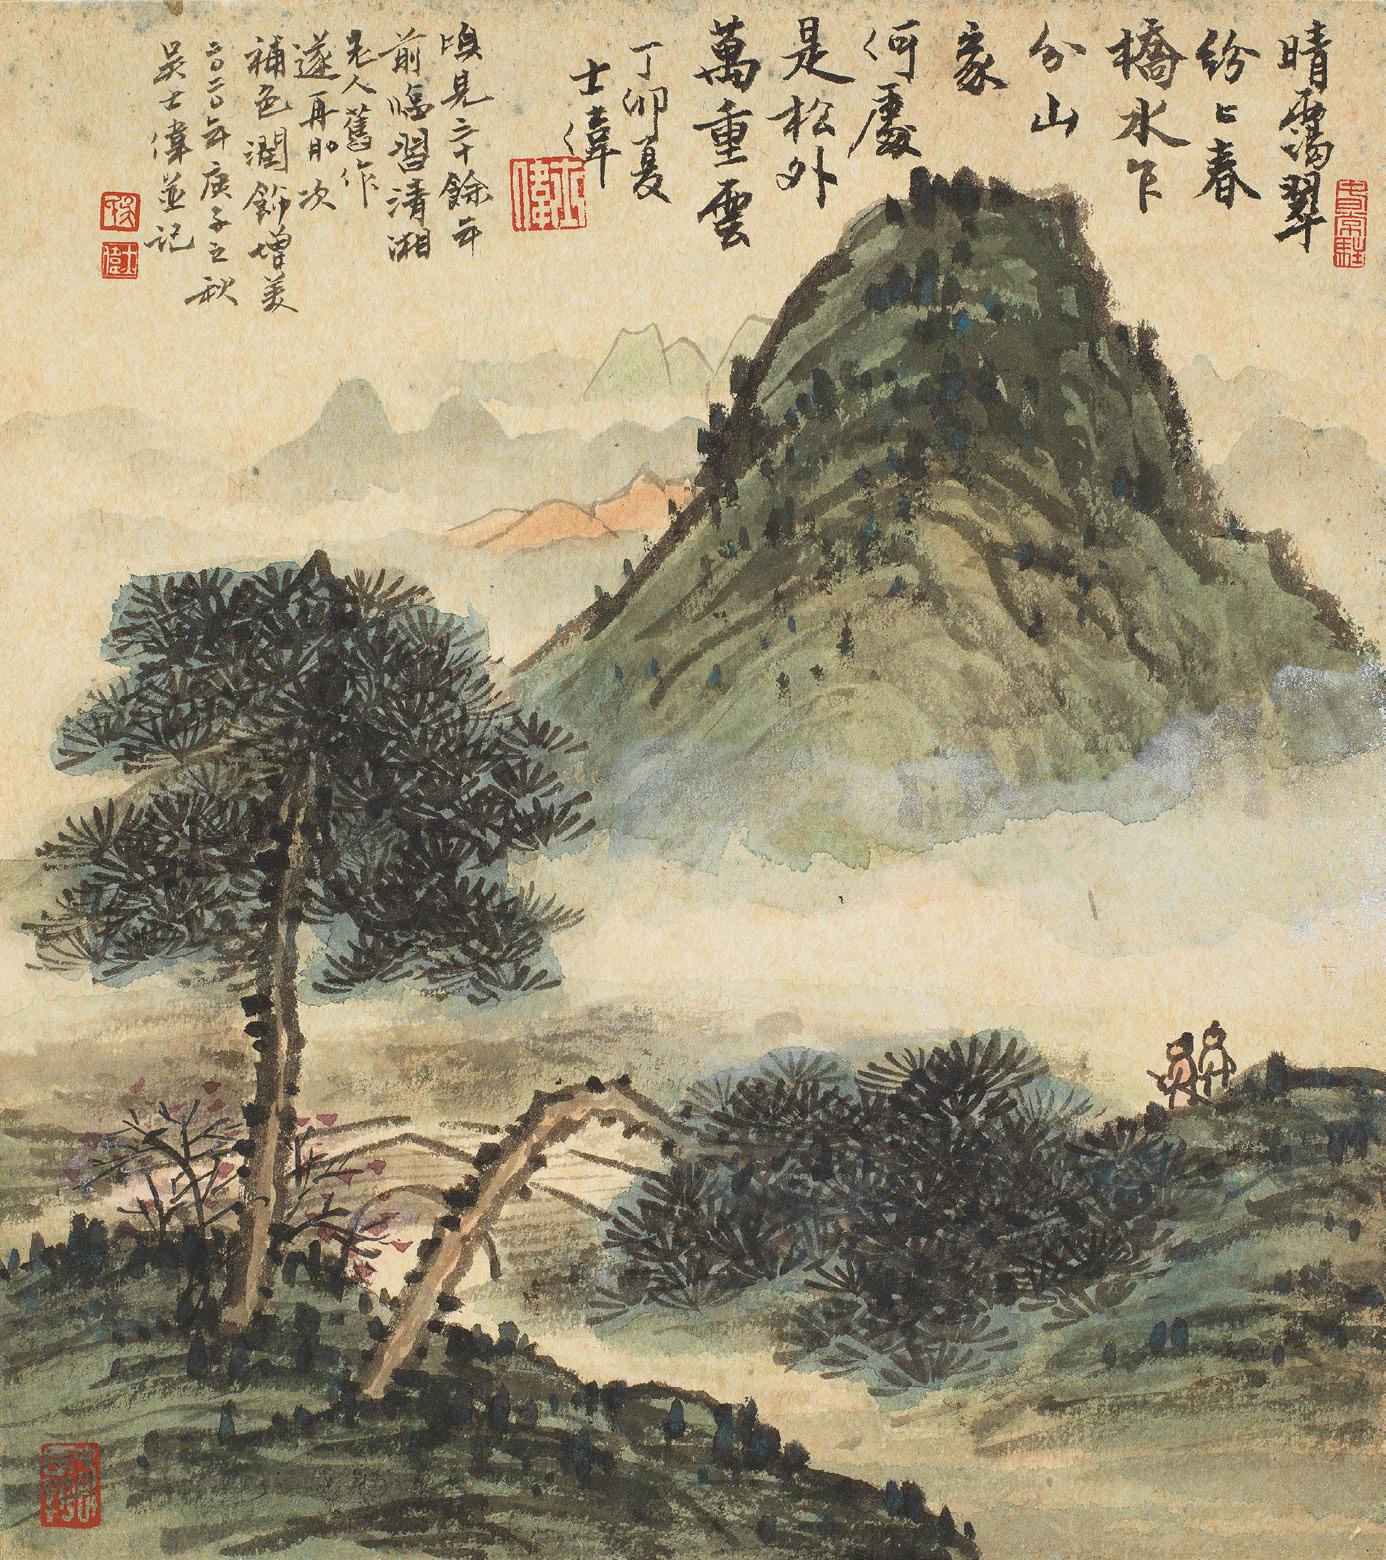 晴靄翠
紛紛春
橋水乍
分山
家
何處
是松外
萬重雲
丁卯夏
士偉
頃見三十餘年
前臨習清湘
老人舊作
遂再加次
補色潤飾增美
二〇二〇年庚子之秋
吳士偉並記
士偉